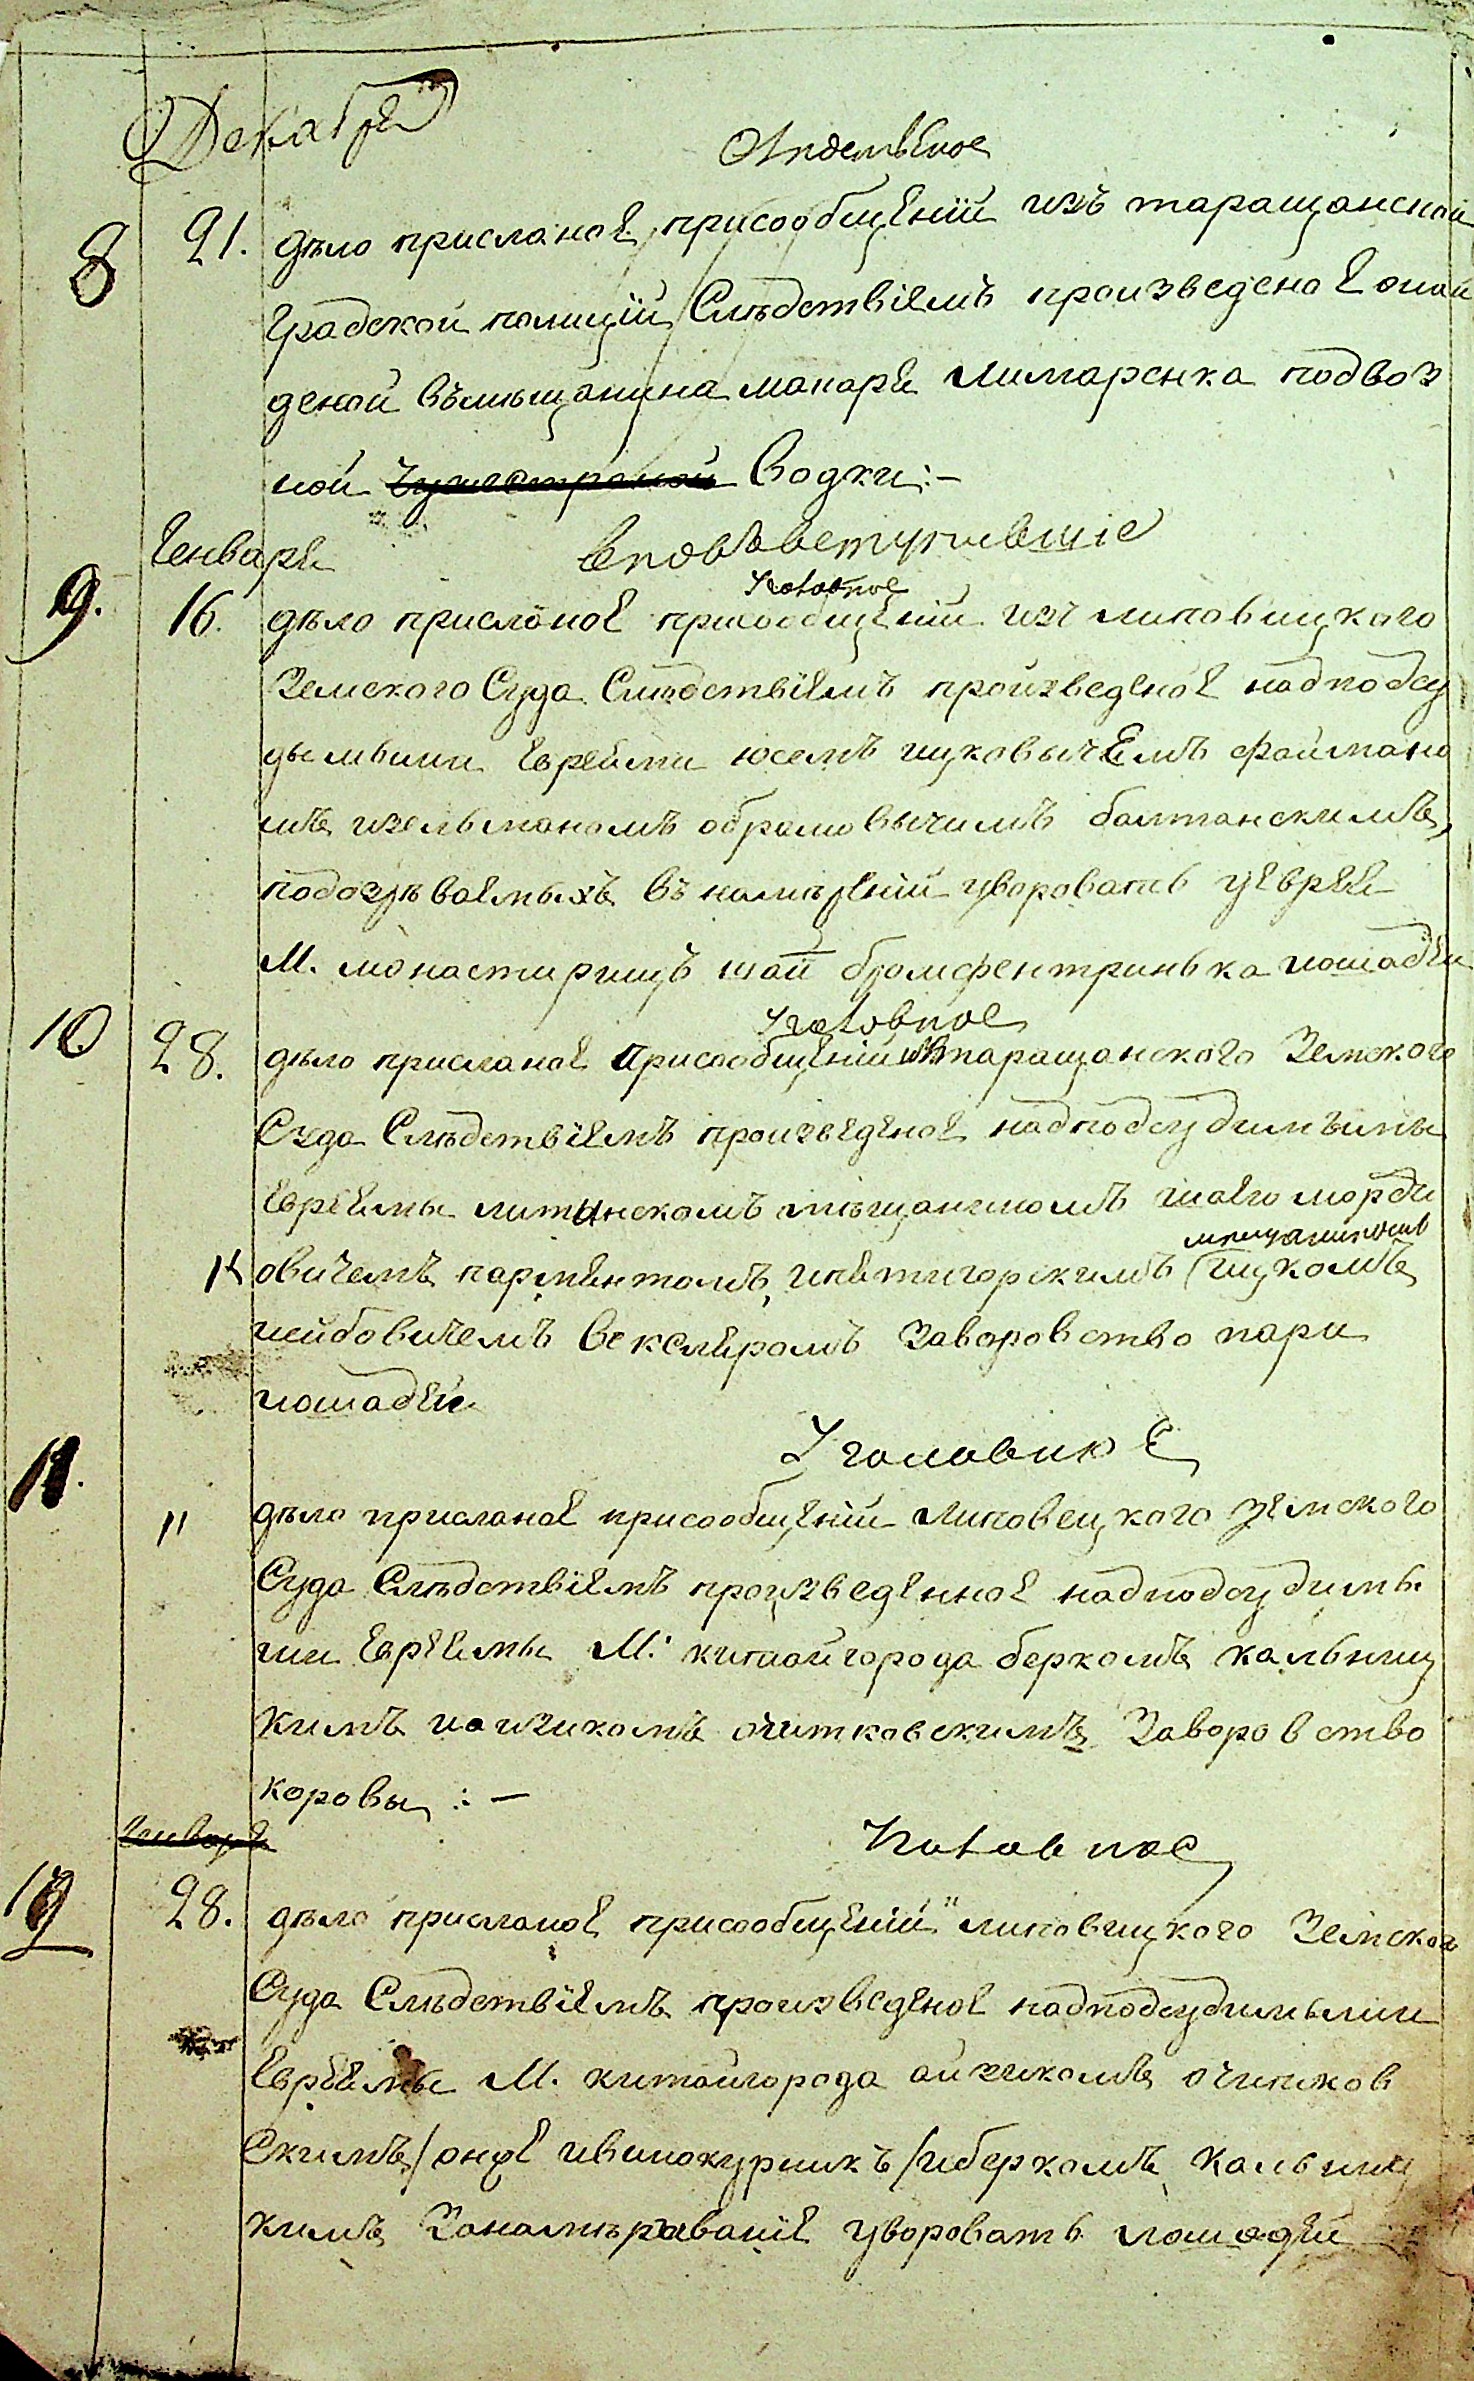 Декабря
Отдельное
8 21. дѣло присланое присообщеніи изъ таращанской
градской полиціи Слѣдствіемъ произведеное онай
деной вѣмѣщанина макаря Лимаренка подвоз
ной Водки:-
Генваря вповь вступившіе
9. 16. дѣло присланое присообщеніи изъ липовицкого
Земского Суда Слѣдствіемъ произведеное надподсу
дымыми евреями юсемъ ицковычемъ файмано
мъ изельманомъ обрамовычимъ балтанскимъ,
подозрѣваемыхъ въ намѣреніи уворовать уеврея
М. монастирищъ шаи бромфентринька лошадеи
10 28. дѣло присланое присообщеніи изъ таращанского Земского
Суда Слѣдствіемъ произведеное надподсудимымы
евреямы литинскомъ мѣщаниномъ шаею морди
мещаниномъ
овичемъ парментомъ, ипятигорскимъ ицкомъ
лейбовичемъ векслеромъ Заворовство пари
лошадей
Уголовное
11. " дѣло присланое присообщеніи Липовецкого земского
Суда Слѣдствіемъ произведенное надподсудимы
ми евреямы М. китайгорода беркомъ кальниц
кимъ иаизикомъ очитковскимъ Заворовство
коровы :-
Генваря
12 28. дѣло присланое присообщеніи " липовицкого Земског
Суда Слѣдствіемъ произведеное надподсудимыми
евреямы М. китайгорода аизикомъ очитков
Скимъ/онже ивинокурникъ/иберкомъ кальниц
кимъ Занамѣраваніе уворовать лошадей